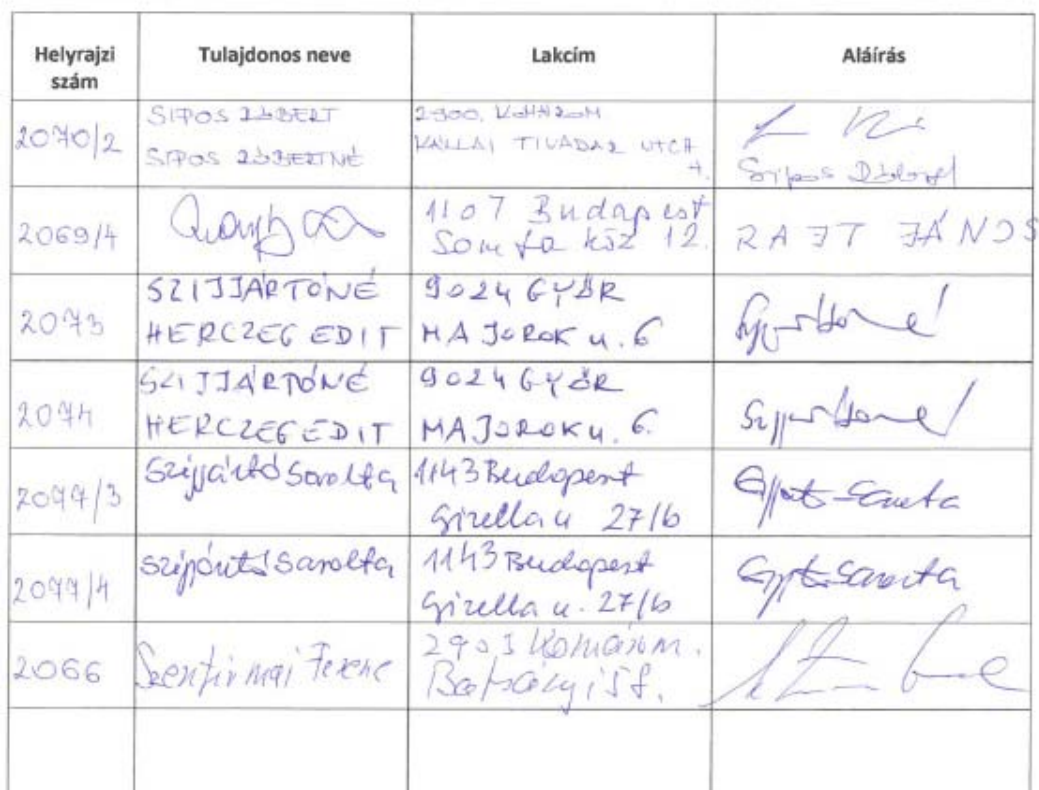 Helyrajzi szám
Tulajdonos neve
Lakcím
Aláírás
2070/2
SIPOS RÓBERT
SIPOS RÓBERTNÉ
2900. KOMÁROM
KÁLLAI TIVADAR UTCA
7.
Sipos Róbert
2069/4
1107 Budapest
Somfa köz 12.
RAJT JÁNOS
2073
SZIJJÁRTÓNÉ
HERCZEG EDIT
9024 GYŐR
MAJOROK u. 6
2074
SZIJJÁRTÓNÉ
HERCZEG EDIT
9024 GYŐR
MAJOROK u. 6.
2077/3
Szijjártó Sarolta
1143 Budapest
Gizella u 27/b
2077/4
Szijjártó Sarolta
1143 Budapest
Gizella u. 27/b
2066
Szentirmai Ferenc
2903 Komárom.
Batsányi